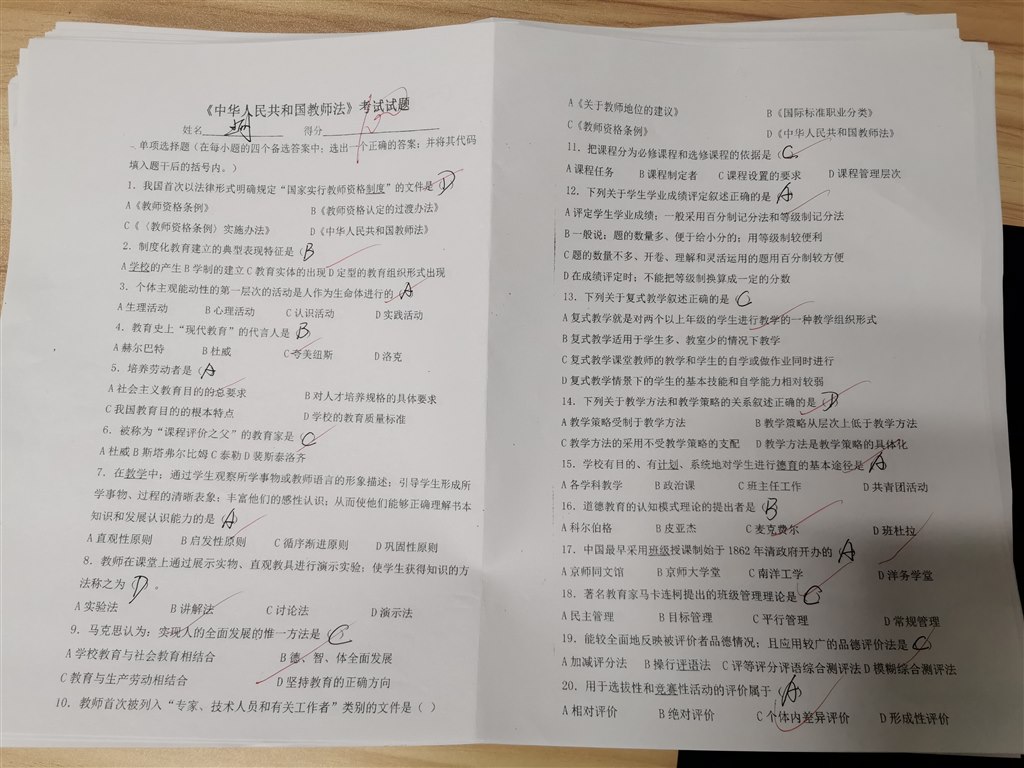 《中华人民共和国教师法》考试试题
姓名 得分
一、单项选择题（在每小题的四个备选答案中；选出一个正确的答案；并将其代码
填入题干后的括号内。）
1．我国首次以法律形式明确规定“国家实行教师资格制度”的文件是（D
A《教师资格条例》 B《教师资格认定的过渡办法》
C《〈教师资格条例〉实施办法》 D《中华人民共和国教师法》
2．制度化教育建立的典型表现特征是（B
A 学校的产生 B 学制的建立 C 教育实体的出现 D 定型的教育组织形式出现
3．个体主观能动性的第一层次的活动是人作为生命体进行的（A
A 生理活动 B 心理活动 C 认识活动 D 实践活动
4．教育史上“现代教育”的代言人是（B
A 赫尔巴特 B 杜威 C 夸美纽斯 D 洛克
5．培养劳动者是（A
A 社会主义教育目的的总要求 B 对人才培养规格的具体要求
C 我国教育目的的根本特点 D 学校的教育质量标准
6．被称为“课程评价之父”的教育家是（C
A 杜威 B 斯塔弗尔比姆 C 泰勒 D 裴斯泰洛齐
7．在教学中；通过学生观察所学事物或教师语言的形象描述；引导学生形成所
学事物、过程的清晰表象；丰富他们的感性认识；从而使他们能够正确理解书本
知识和发展认识能力的是（A
A 直观性原则 B 启发性原则 C 循序渐进原则 D 巩固性原则
8．教师在课堂上通过展示实物、直观教具进行演示实验；使学生获得知识的方
法称之为（D 。
A 实验法 B 讲解法 C 讨论法 D 演示法
9．马克思认为；实现人的全面发展的惟一方法是（C）
A 学校教育与社会教育相结合 B 德、智、体全面发展
C 教育与生产劳动相结合 D 坚持教育的正确方向
10．教师首次被列入“专家、技术人员和有关工作者”类别的文件是（ ）
A《关于教师地位的建议》 B《国际标准职业分类》
C《教师资格条例》 D《中华人民共和国教师法》
11．把课程分为必修课程和选修课程的依据是（C
A 课程任务 B 课程制定者 C 课程设置的要求 D 课程管理层次
12．下列关于学生学业成绩评定叙述正确的是（A
A 评定学生学业成绩；一般采用百分制记分法和等级制记分法
B 一般说；题的数量多、便于给小分的；用等级制较便利
C 题的数量不多、开卷、理解和灵活运用的题用百分制较方便
D 在成绩评定时；不能把等级制换算成一定的分数
13．下列关于复式教学叙述正确的是（C
A 复式教学就是对两个以上年级的学生进行教学的一种教学组织形式
B 复式教学适用于学生多、教室少的情况下教学
C 复式教学课堂教师的教学和学生的自学或做作业同时进行
D 复式教学情景下的学生的基本技能和自学能力相对较弱
14．下列关于教学方法和教学策略的关系叙述正确的是（D
A 教学策略受制于教学方法 B 教学策略从层次上低于教学方法
C 教学方法的采用不受教学策略的支配 D 教学方法是教学策略的具体化
15．学校有目的、有计划、系统地对学生进行德育的基本途径是（A
A 各学科教学 B 政治课 C 班主任工作 D 共青团活动
16．道德教育的认知模式理论的提出者是（B
A 科尔伯格 B 皮亚杰 C 麦克费尔 D 班杜拉
17．中国最早采用班级授课制始于 1862 年清政府开办的（A
A 京师同文馆 B 京师大学堂 C 南洋工学 D 洋务学堂
18．著名教育家马卡连柯提出的班级管理理论是（C
A 民主管理 B 目标管理 C 平行管理 D 常规管理
19．能较全面地反映被评价者品德情况；且应用较广的品德评价法是（C
A 加减评分法 B 操行评语法 C 评等评分评语综合测评法 D 模糊综合测评法
20．用于选拔性和竞赛性活动的评价属于（A
A 相对评价 B 绝对评价 C 个体内差异评价 D 形成性评价